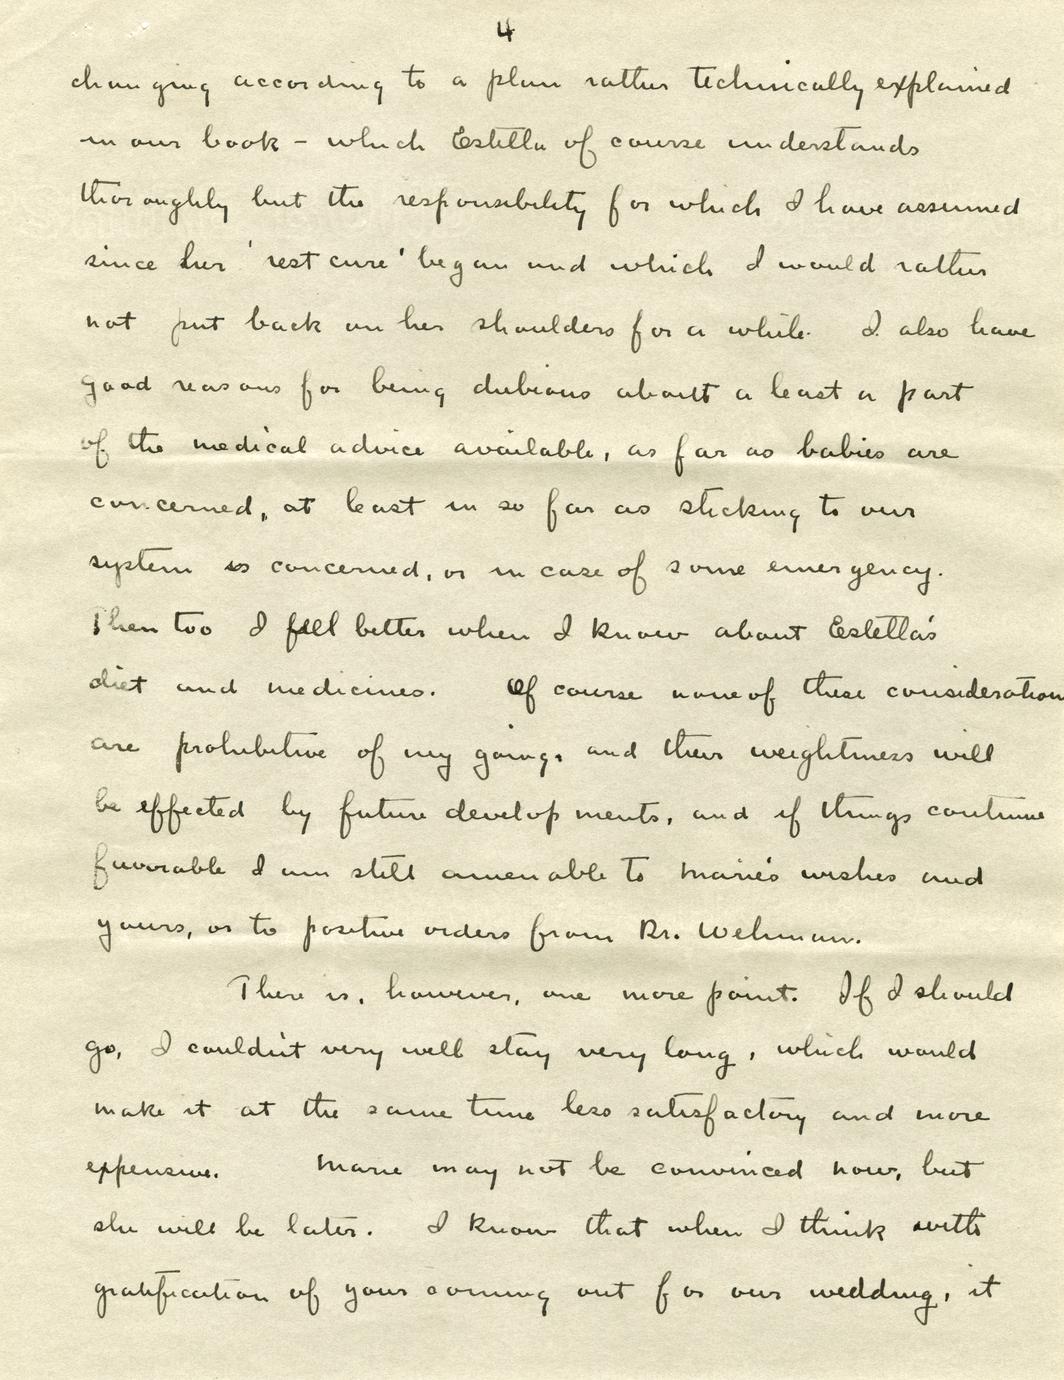 4
changing according to a plan rather technically explained
in our book - which Estella of course understands
thoroughly but the responsibility for which I have assumed
since her 'rest cure' began and which I would rather
not put back on her shoulders for a while. I also have
good reasons for being dubious about a least a part
of the medical advice available, as far as babies are
concerned, at least in so far as sticking to our
system is concerned, or in case of some emergency.
Then too I feel better when I know about Estella's
diet and medicines. Of course none of these consideration
are prohibitive of my going, and their weightiness will
be effected by future developments, and if things continue
favorable I am still amenable to Marie's wishes and
yours, or to positive orders from Dr. Welmaun.
There is, however, one more point. If I should
go, I couldn't very well stay very long, which would
make it at the same time less satisfactory and more
expensive. Marie may not be convinced now, but
she will be later. I know that when I think with
gratification of your coming out for our wedding, it